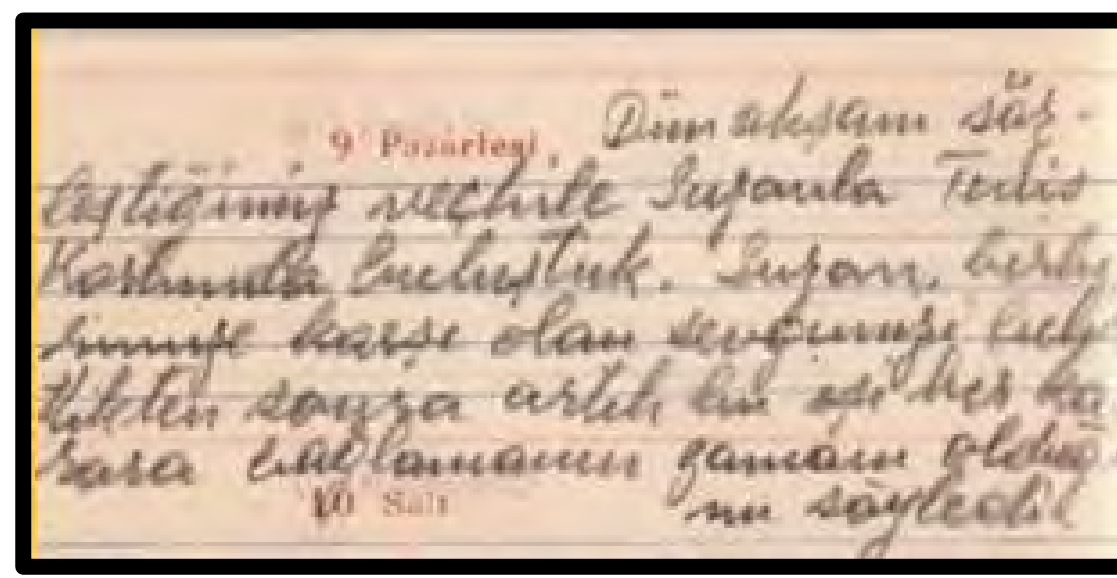 9 Pazartesi Dün akşam söz-
leştiğimiz veçhile Suzanla Tenis
Kortunda buluştuk. Suzan, birbi
rimize karşı olan sevgimizi
ettikten sonra artık bu işi bir ka
rara bağlamanın zamanı olduğ
10 Salı nu söyledi